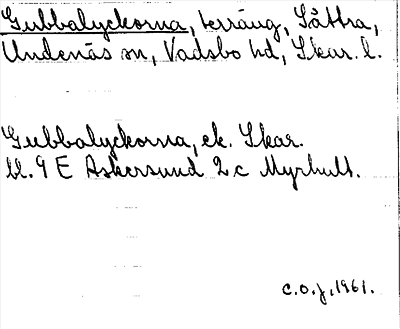 Gubbalyckorna, terräng, Såttra,
Undenäs sn, Vadsbo hd, Skar. l.
Gubbalyckorna, ek. Skar.
bl. 9 E Askersund 2 c Myrhult.
C.O.J. 1961.